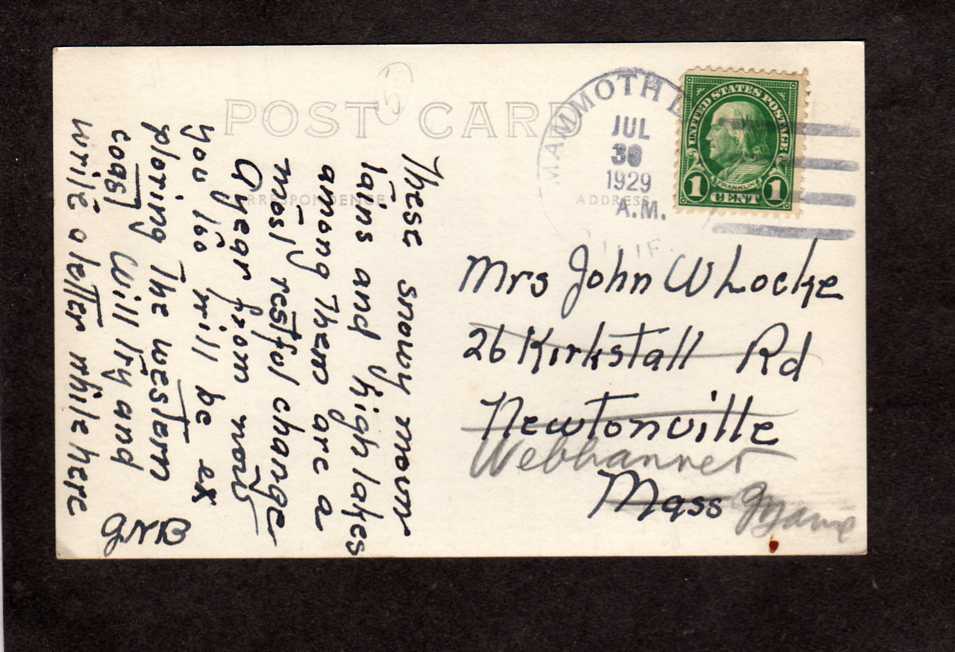 POST CARD
CORRESPONDENCE
ADDRESS
MAMMOTH L
JUL
30
1929
A.M.
CALIF.
UNITED STATES POSTAGE
FRANKLIN
1 CENT 1
These snowy moun
tains and high lakes
among them are a
most restful change
A year from now
you too will be ex
ploring the western
coast Will try and
write a letter while here
GNB
Mrs John W Locke
26 Kirkstall Rd
Newtonville
Webhannet
Mass Maine
5